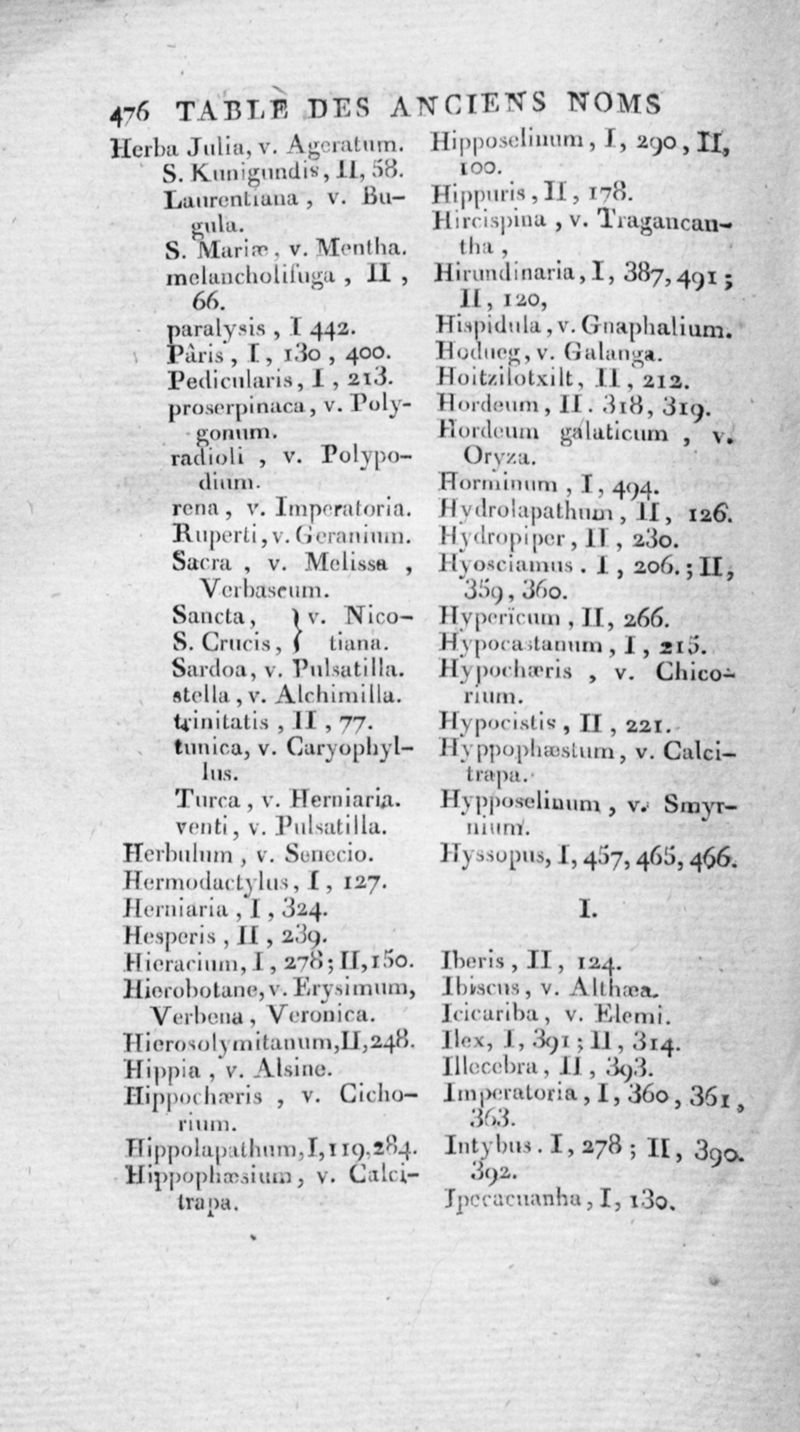 476 TABLE DES ANCIENS NOMS
Herba Julia, v. Ageratum.
S. Kunigundis, II, 58.
Laurentiana, v. Bu-
gula.
S. Mariæ, v. Mentha.
melancholifuga, II,
66.
paralysis, I 442.
Pâris, I, 130, 400.
Pedicularis, I, 213.
proserpinaca, v. Poly-
gonum.
radioli, v. Polypo-
dium.
rena, v. Imperatoria.
Ruperti, v. Geranium.
Sacra, v. Melissa,
Verbascum.
Sancta, } v. Nico-
S. Crucis, { tiana.
Sardoa, v. Pulsatilla.
stella, v. Alchimilla.
trinitatis, II, 77.
tunica, v. Caryophyl-
lus.
Turca, v. Herniaria.
venti, v. Pulsatilla.
Herbulum, v. Senecio.
Hermodactylus, I, 127.
Herniaria, I, 324.
Hesperis, II, 239.
Hieracium, I, 278; II, 150.
Hierobotane, v. Erysimum,
Verbena, Veronica.
Hierosolymitanum, II, 248.
Hippia, v. Alsine.
Hippochæris, v. Cicho-
rium.
Hippolapathum, I, 119, 284.
Hippophæsium, v. Calci-
trapa.
Hipposelinum, I, 290, II,
100.
Hippuris, II, 178.
Hircispina, v. Tragancan-
tha,
Hirundinaria, I, 387, 491;
II, 120,
Hispidula, v. Gnaphalium.
Hodueg, v. Galanga.
Hoitzilotxilt, II, 212.
Hordeum, II. 318, 319.
Hordeum galaticum, v.
Oryza.
Horminum, I, 494.
Hydrolapathum, II, 126.
Hydropiper, II, 230.
Hyosciamus. I, 206.; II,
359, 360.
Hypericum, II, 266.
Hypocastanum, I, 215.
Hypochæris, v. Chico-
rium.
Hypocistis, II, 221.
Hyppophæstum, v. Calci-
trapa.
Hypposelinum, v. Smyr-
nium.
Hyssopus, I, 457, 465, 466.
I.
Iberis, II, 124.
Ibiscus, v. Althæa.
Icicariba, v. Elemi.
Ilex, I, 391; II, 314.
Illecebra, II, 393.
Imperatoria, I, 360, 361,
363.
Intybus. I, 278; II, 390.
392.
Ipecacuanha, I, 130.